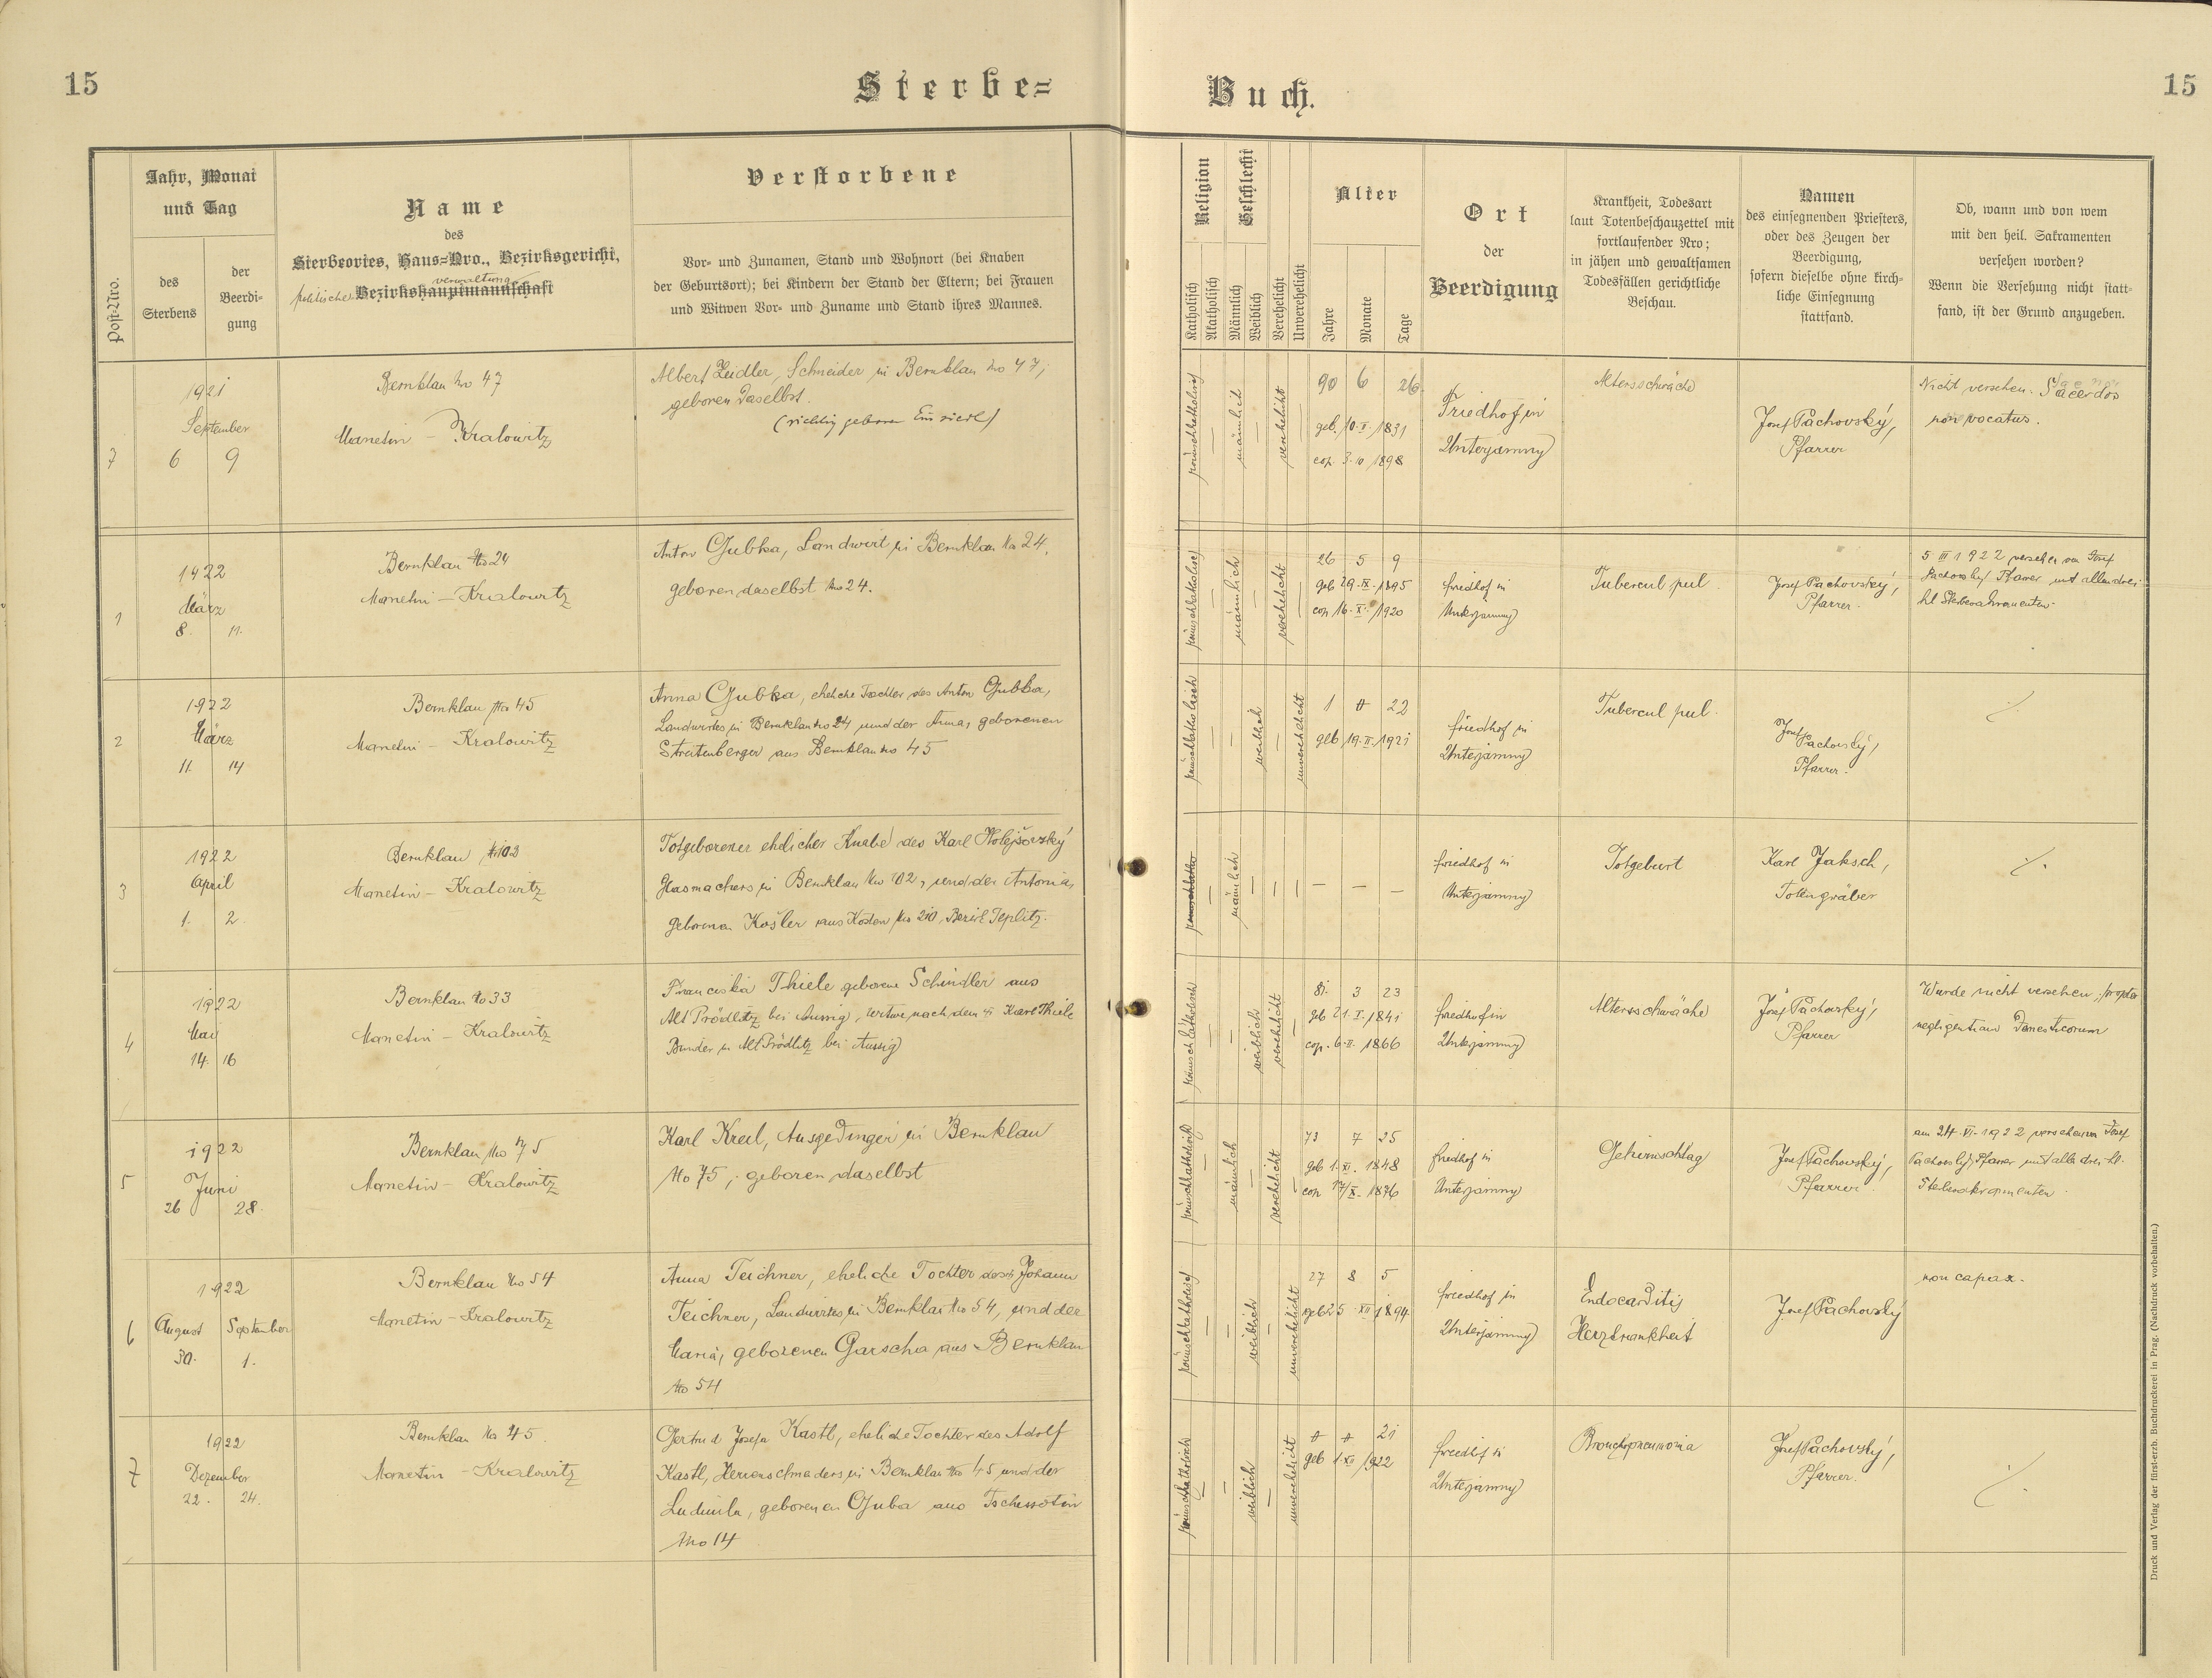 15
Sterbe=
Buch.
15
Post-Nro.
Jahr, Monat
und Tag
des
Sterbens
der
Beerdi-
gung
Name
des
Sterbeortes, Haus-Nro., Bezirksgericht,
verwaltung
politische Bezirkshauptmannschaft
Verstorbene
Vor- und Zunamen, Stand und Wohnort (bei Knaben
der Geburtsort); bei Kindern der Stand der Eltern; bei Frauen
und Witwen Vor- und Zuname und Stand ihres Mannes.
Religion
Katholisch
Akatholisch
Geschlecht
Männlich
Weiblich
Verehelicht
Unverehelicht
Alter
Jahre
Monate
Tage
Ort
der
Beerdigung
Krankheit, Todesart
laut Totenbeschauzettel mit
fortlaufender Nro;
in jähen und gewaltsamen
Todesfällen gerichtliche
Beschau.
Namen
des einsegnenden Priesters,
oder des Zeugen der
Beerdigung,
sofern dieselbe ohne kirch-
liche Einsegnung
stattfand.
Ob, wann und von wem
mit den heil. Sakramenten
versehen worden?
Wenn die Versehung nicht statt-
fand, ist der Grund anzugeben.
7
1921
September
6 9
Bernklau No 47
Manetin - Kralowitz
Albert Zeidler, Schneider in Bernklau No 47,
geboren daselbst.
(richtig geboren Einsiedl)
römischkatholisch
—
männlich
—
verehelicht
90 6 26
geb. 10.II.1831
cop. 3.10 1898
Friedhof in
Unterjamny
Altersschwäche
Josef Pachovský,
Pfarrer
Nicht versehen. Sacerdos
non vocatus.
1
1922
März
8. 11.
Bernklau No 24
Manetin - Kralowitz
Anton Gubka, Landwirt in Bernklau No 24,
geboren daselbst No 24.
römischkatholisch
—
männlich
—
verehelicht
26 5 9
geb 29.IX.1895
cop 16.XI.1920
friedhof in
Unterjamny
Tubercul pul.
Josef Pachovský,
Pfarrer.
5 III 1922 versehen von Josef
Pachovský Pfarrer mit allen drei
hl Sterbesakramenten.
2
1922
März
11. 14
Bernklau No 45
Manetin - Kralowitz
Anna Gubka, eheliche Tochter des Anton Gubka,
Landwirtes in Bernklau No 24 und der Anna, geborenen
Streitenberger aus Bernklau No 45
römischkatholisch
—
—
weiblich
—
unverehelicht
1 0 22
geb 19.II.1921
friedhof in
Unterjamny
Tubercul pul.
Josef
Pachovský,
Pfarrer.
·/.
3
1922
April
1. 2.
Bernklau No 102
Manetin - Kralowitz
Totgeborener ehelicher Knabe des Karl Holejšovzký
Glasmachers in Bernklau No 102, und der Antonia,
geborenen Košler aus Kosten No 210, Bezirk Teplitz.
römischkatho
—
männlich
— — —
— — —
friedhof in
Unterjamny
Totgeburt
Karl Jaksch,
Totengräber
·/.
4
1922
Mai
14. 16
Bernklau No 33
Manetin - Kralowitz
Franciska Thiele geborene Schindler aus
Alt Prödlitz bei Aussig, Witwe nach dem † Karl Thiele
Binder in Alt Prödlitz bei Aussig
römischkatholisch
—
—
weiblich
verehelicht
—
81. 3 23
geb 21.I.1841
cop. 6.II. 1866
friedhof in
Unterjamny
Altersschwäche
Josef Pachovský,
Pfarrer
Wurde nicht versehen, propter
negligentiam Domesticorum
5
1922
Juni
26 28.
Bernklau No 75
Manetin - Kralowitz
Karl Kreil, Ausgedinger in Bernklau
No 75, geboren daselbst
römischkatholisch
—
männlich
—
verehelicht
—
73 7 25
geb 1.XI.1848
cop 17/X. 1876
friedhof in
Unterjamny
Gehirnschlag
Josef Pachovský,
Pfarrer
am 24.VI.1922 versehen von Josef
Pachovský, Pfarrer mit alle drei hl.
Sterbesakramenten
6
1922
August September
30. 1.
Bernklau No 54
Manetin - Kralowitz
Anna Teichner, eheliche Tochter des Johann
Teichner, Landwirtes in Bernklau No 54, und der
Maria, geborenen Garscha aus Bernklau
No 54
römischkatholisch
—
—
weiblich
—
unverehelicht
27 8 5
geb 25 XII 1894
friedhof in
Unterjamny
Endocarditis
Herzkrankheit
Josef Pachovský
non capax.
7
1922
Dezember
22. 24.
Bernklau No 45.
Manetin - Kralowitz
Gertrud Josefa Kastl, eheliche Tochter des Adolf
Kastl, Herrenschneiders in Bernklau No 45 und der
Ludmila, geborenen Guba aus Tschewotin
No 14
römischkatholisch
—
—
weiblich
—
unverehelicht
0 0 21
geb 1.XII 1922
friedhof in
Unterjamny
Bronchopneumonia
Josef Pachovský,
Pfarrer.
·/.
Druck und Verlag der fürst-erzb. Buchdruckerei in Prag. (Nachdruck vorbehalten.)